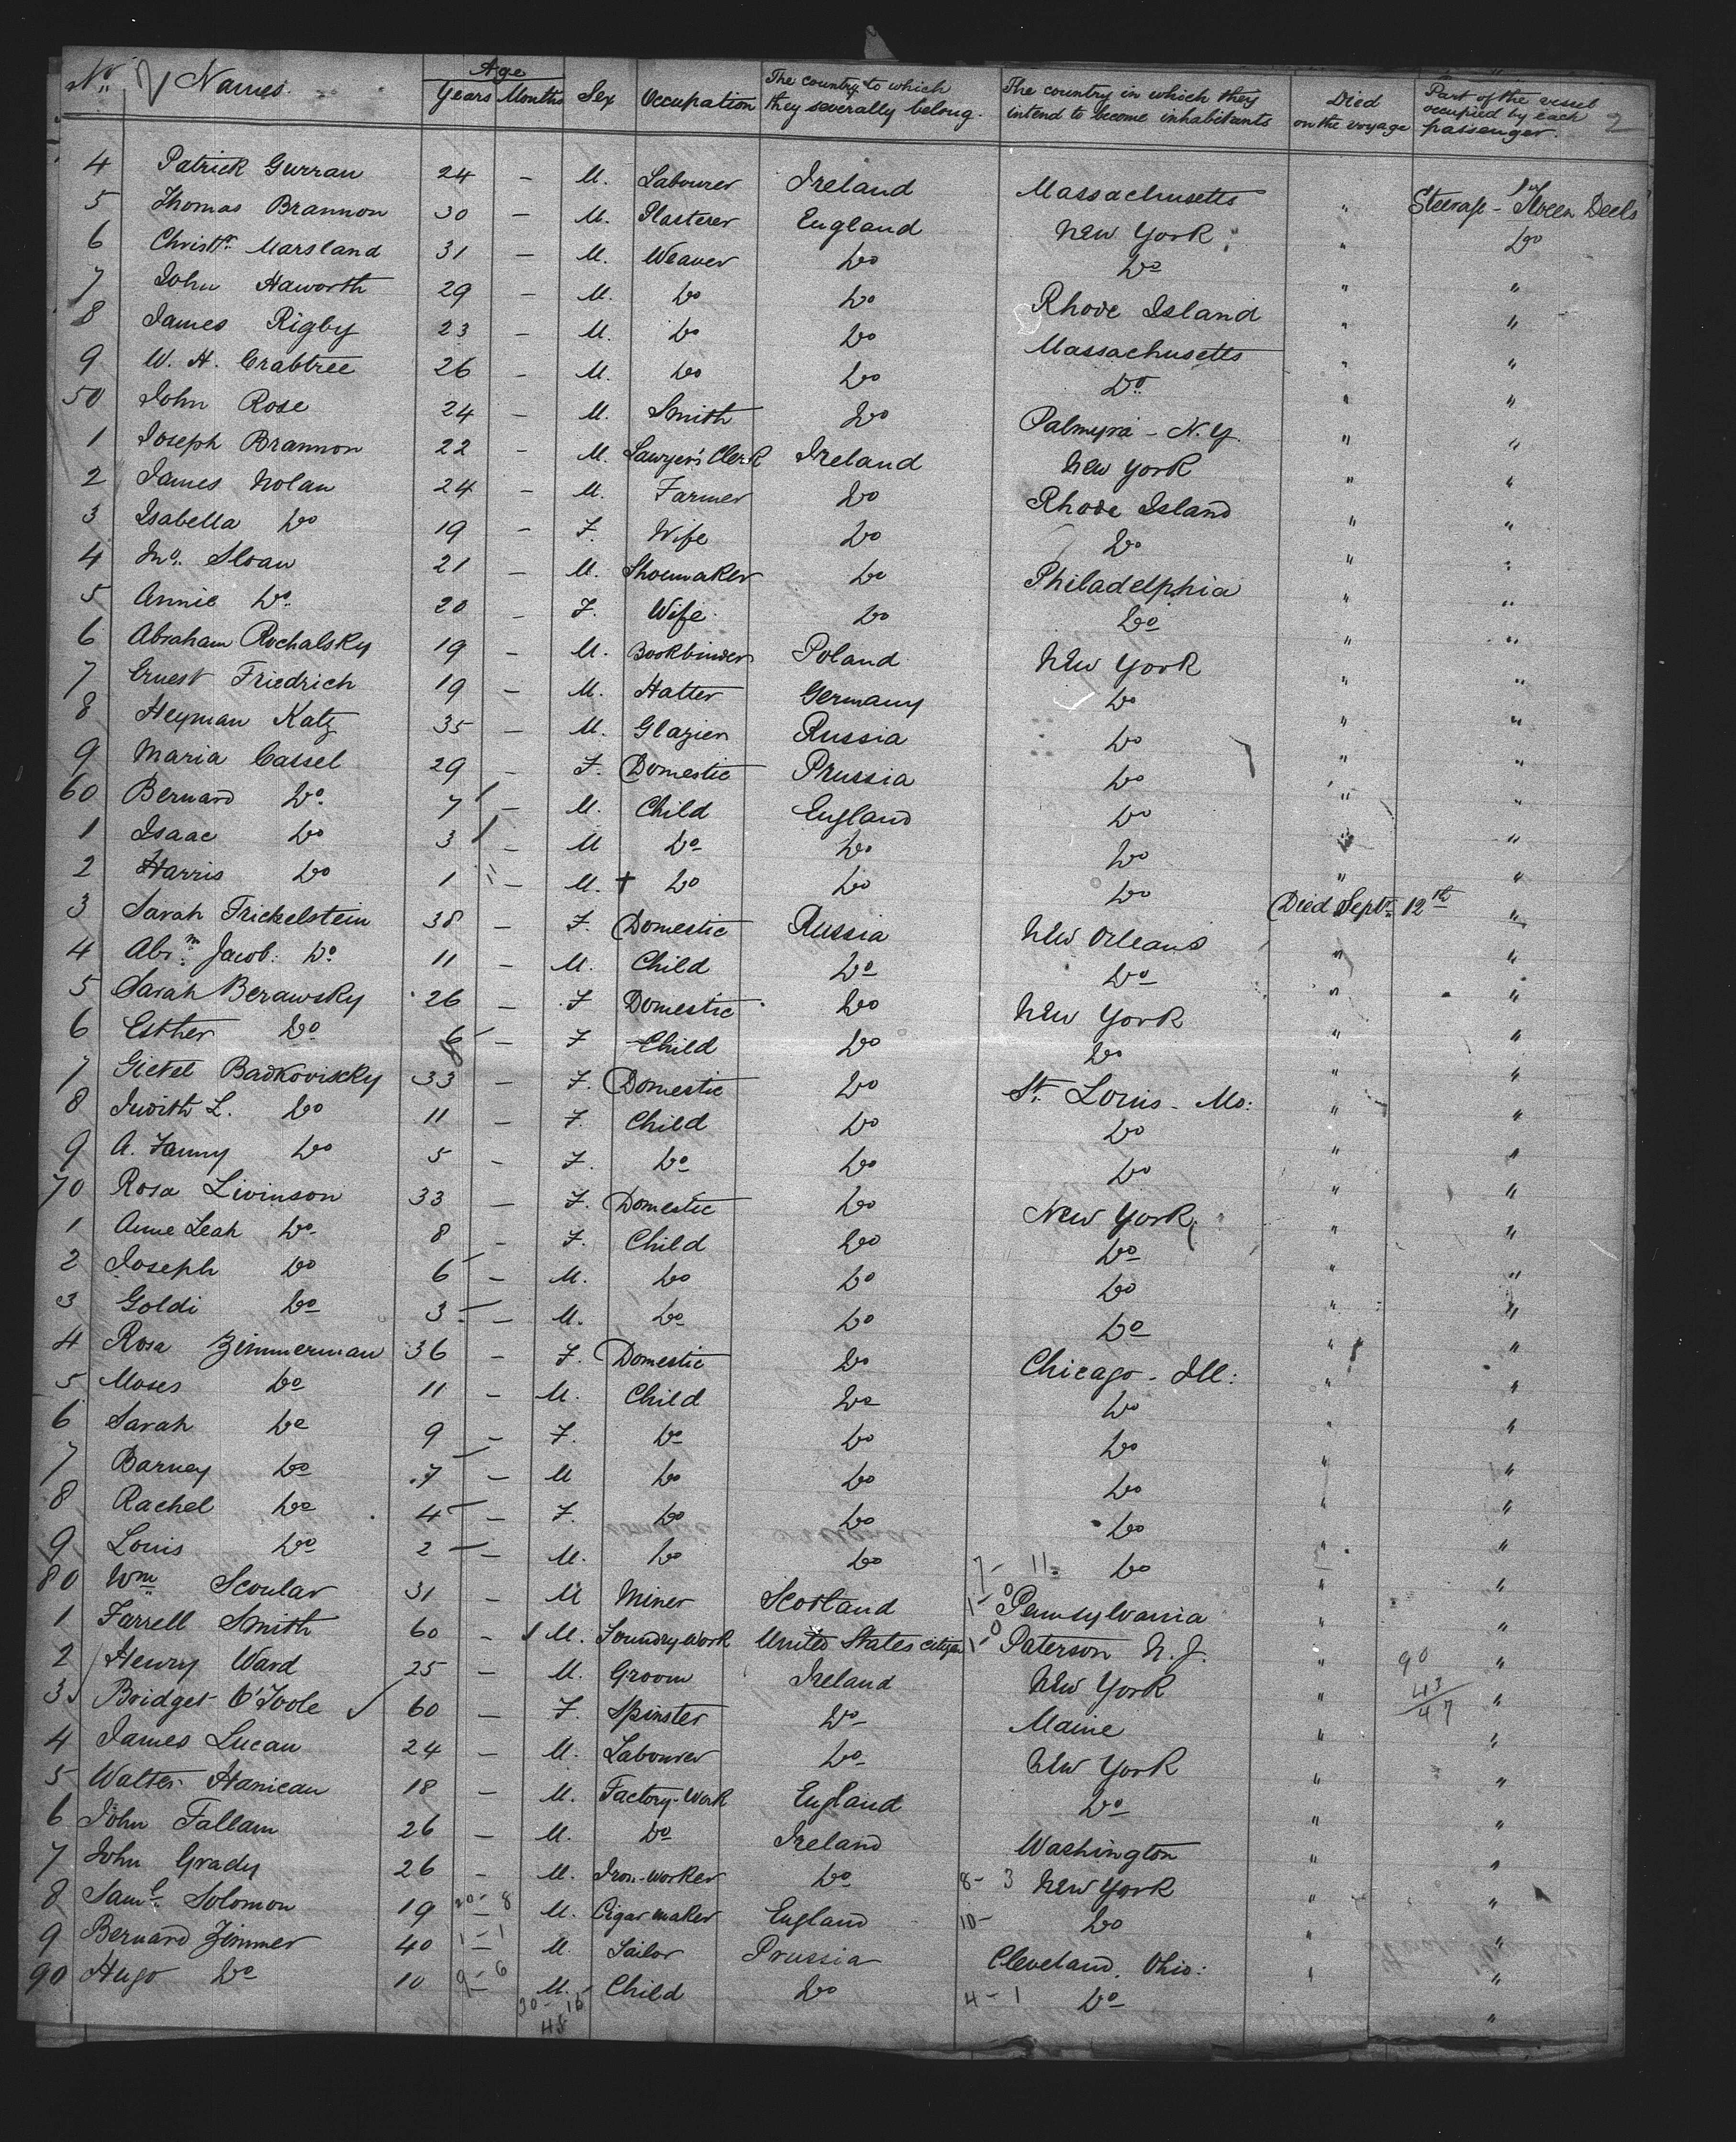 No. Names. Age Years Months Sex Occupation The country to which they severally belong. The country in which they intend to become inhabitants Died on the voyage Part of the vessel occupied by each passenger. 2
4 Patrick Gurran 24 - M. Labourer Ireland Massachusetts " Steerage - Decks
5 Thomas Brannon 30 - M. Plasterer England New York " Do
6 Christr. Marsland 31 - M. Weaver Do Do " "
7 John Haworth 29 - M. Do Do Rhode Island " "
8 James Rigby 23 - M. Do Do Massachusetts " "
9 W. H. Crabtree 26 - M. Do Do Do " "
50 John Rose 24 - M. Smith Do Palmyra - N.Y. " "
1 Joseph Brannon 22 - M. Lawyer's Clerk Ireland New York " "
2 James Nolan 24 - M. Farmer Do Rhode Island " "
3 Isabella Do 19 - F. Wife Do Do " "
4 Jno. Sloan 21 - M. Shoemaker Do Philadelphia " "
5 Annie Do. 20 - F. Wife Do Do " "
6 Abraham Rochalsky 19 - M. Bookbinder Poland New York " "
7 Ernest Friedrich 19 - M. Hatter Germany Do " "
8 Heyman Katz 35 - M. Glazier Russia Do " "
9 Maria Cassel 29 - F. Domestic Prussia Do " "
60 Bernard Do. 7 - M. Child England Do " "
1 Isaac Do 3 - M Do Do Do " "
2 Harris Do 1 - M. + Do Do Do Died Septr. 12th "
3 Sarah Frickelstein 38 - F. Domestic Russia New Orleans " "
4 Abrm. Jacob. Do. 11 - M. Child Do Do " "
5 Sarah Berawsky 26 - F Domestic Do New York " "
6 Esther Do 6 - F Child Do Do " "
7 Gietel Badkoviscky 33 - F. Domestic Do St. Louis - Mo: " "
8 Judith L. Do 11 - F. Child Do Do " "
9 A. Fanny Do 5 - F. Do Do Do " "
70 Rosa Livinson 33 - F. Domestic Do New York " "
1 Anne Leah Do 8 - F. Child Do Do " "
2 Joseph Do 6 - M. Do Do Do " "
3 Goldi Do 3 - M. Do Do Do " "
4 Rosa Zimmerman 36 - F. Domestic Do Chicago - Ill: " "
5 Moses Do 11 - M. Child Do Do " "
6 Sarah Do 9 - F. Do Do Do " "
7 Barney Do 7 - M Do Do Do " "
8 Rachel Do 4 - F. Do Do Do " "
9 Louis Do 2 - M. Do Do 7 - 11 Do " "
80 Wm. Scoular 31 - M Miner Scotland 1 - 0 Pennsylvania " "
1 Farrell Smith 60 - M. Foundry Work United States Citizen 1 - 0 Paterson N.J. " "
2 Henry Ward 25 - M. Groom Ireland New York " 90 "
3 Bridget O'Toole ✓ 60 - F. Spinster Do Maine " 43/47 "
4 James Lucan 24 - M. Labourer Do New York " "
5 Walter Hanican 18 - M. Factory-Work England Do " "
6 John Fallam 26 - M. Do Ireland Washington " "
7 John Grady 26 - M. Iron-Worker Do 8 - 3 New York " "
8 Saml. Solomon 19 20 - 8 M. Cigar maker England 10 - Do " "
9 Bernard Zimmer 40 1 - 1 M. Tailor Prussia Cleveland, Ohio: " "
90 Hugo Do 10 9 - 6 M. - Child Do 4 - 1 Do "
30 - 16